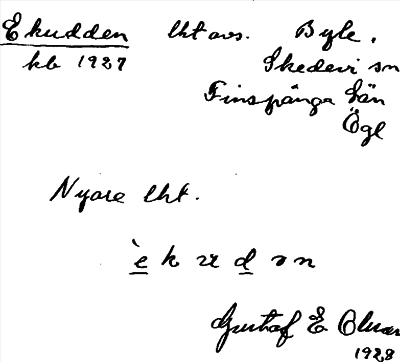 Ekudden lht avs. Byle.
kb 1927 Skedevi sn
Finspånga län
Ögl
Nyare lht.
è k u d ə n
Gustaf E
1928